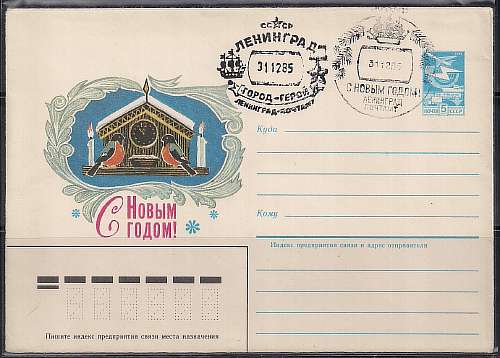 СССР
ЛЕНИНГРАД
311285
ГОРОД-ГЕРОЙ
ЛЕНИНГРАД-ПОЧТАМТ
311285
С НОВЫМ ГОДОМ!
ЛЕНИНГРАД
ПОЧТАМТ
ПОЧТА 5 СССР
С НОВЫМ
ГОДОМ!
Куда
Кому
Индекс предприятия связи и адрес отправителя
Пишите индекс предприятия связи места назначения